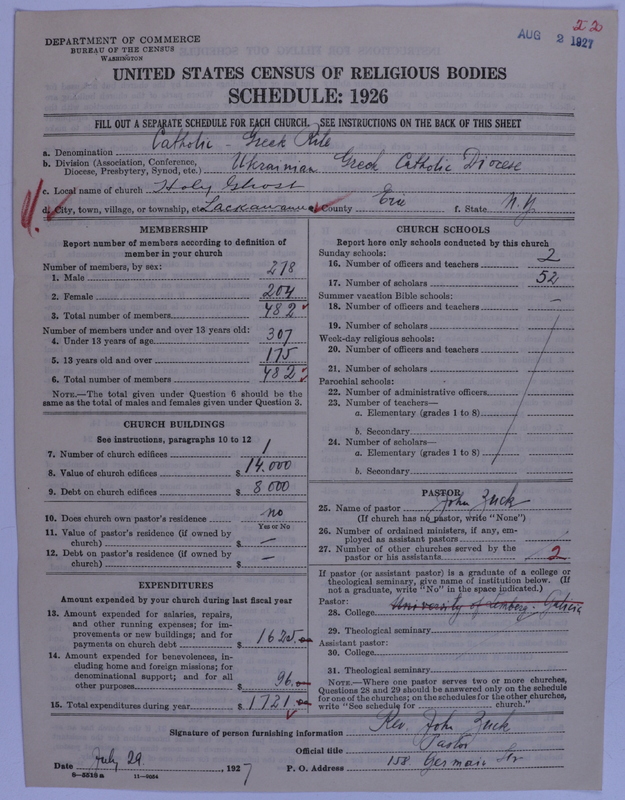 22
AUG 2 1927
DEPARTMENT OF COMMERCE
BUREAU OF THE CENSUS
WASHINGTON
UNITED STATES CENSUS OF RELIGIOUS BODIES
SCHEDULE: 1926
FILL OUT A SEPARATE SCHEDULE FOR EACH CHURCH. SEE INSTRUCTIONS ON THE BACK OF THIS SHEET
a. Denomination Catholic - Greek Rite
b. Division (Association, Conference, Diocese, Presbytery, Synod, etc.) Ukrainian Greek Catholic Diocese
c. Local name of church Holy Ghost
d. City, town, village, or township, etc. Lackawanna e. County Erie f. State N.Y.
MEMBERSHIP
Report number of members according to definition of
member in your church
Number of members, by sex:
1. Male 278
2. Female 204
3. Total number of members 482
Number of members under and over 13 years old:
4. Under 13 years of age 307
5. 13 years old and over 175
6. Total number of members 482
NOTE.—The total given under Question 6 should be the
same as the total of males and females given under Question 3.
CHURCH BUILDINGS
See instructions, paragraphs 10 to 12
7. Number of church edifices 1
8. Value of church edifices $ 14.000
9. Debt on church edifices $ 8 000
10. Does church own pastor's residence no
Yes or No
11. Value of pastor's residence (if owned by
church) $ —
12. Debt on pastor's residence (if owned by
church) $ —
EXPENDITURES
Amount expended by your church during last fiscal year
13. Amount expended for salaries, repairs,
and other running expenses; for im-
provements or new buildings; and for
payments on church debt $ 1625.
14. Amount expended for benevolences, in-
cluding home and foreign missions; for
denominational support; and for all
other purposes $ 96.
15. Total expenditures during year $ 1721
CHURCH SCHOOLS
Report here only schools conducted by this church
Sunday schools:
16. Number of officers and teachers 2
17. Number of scholars 52
Summer vacation Bible schools:
18. Number of officers and teachers —
19. Number of scholars
Week-day religious schools:
20. Number of officers and teachers
21. Number of scholars
Parochial schools:
22. Number of administrative officers
23. Number of teachers—
a. Elementary (grades 1 to 8)
b. Secondary
24. Number of scholars—
a. Elementary (grades 1 to 8)
b. Secondary
PASTOR
25. Name of pastor John Zuck
(If church has no pastor, write "None")
26. Number of ordained ministers, if any, em-
ployed as assistant pastors
27. Number of other churches served by the
pastor or his assistants 2
If pastor (or assistant pastor) is a graduate of a college or
theological seminary, give name of institution below. (If
not a graduate, write "No" in the space indicated.)
Pastor:
28. College University of Lemberg - Galicia
29. Theological seminary
Assistant pastor:
30. College
31. Theological seminary
NOTE.—Where one pastor serves two or more churches,
Questions 28 and 29 should be answered only on the schedule
for one of the churches; on the schedules for the other churches,
write "See schedule for church."
Signature of person furnishing information Rev. John Zuck
Official title Pastor
Date July 29, 1927 P. O. Address 158 Germain Str
8—5518a 11—9654